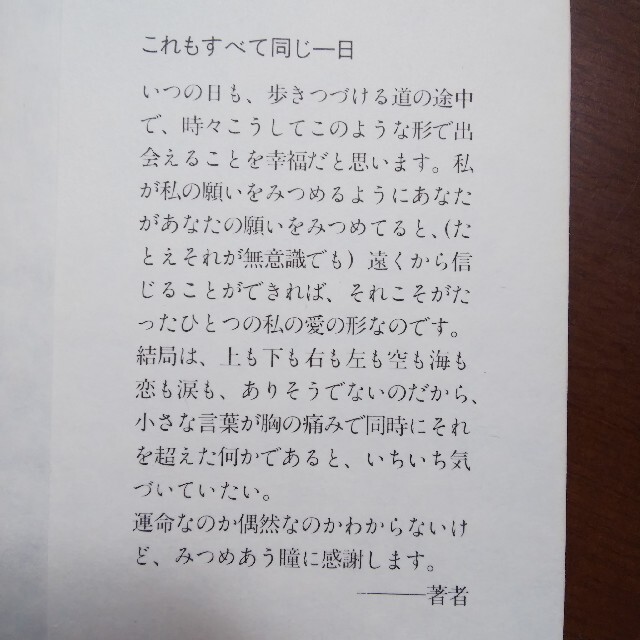 これもすべて同じ一日
いつの日も、歩きつづける道の途中
で、時々こうしてこのような形で出
会えることを幸福だと思います。私
が私の願いをみつめるようにあなた
があなたの願いをみつめてると、(た
とえそれが無意識でも) 遠くから信
じることができれば、それこそがた
ったひとつの私の愛の形なのです。
結局は、上も下も右も左も空も海も
恋も涙も、ありそうでないのだから、
小さな言葉が胸の痛みで同時にそれ
を超えた何かであると、いちいち気
づいていたい。
運命なのか偶然なのかわからないけ
ど、みつめあう瞳に感謝します。
――著者